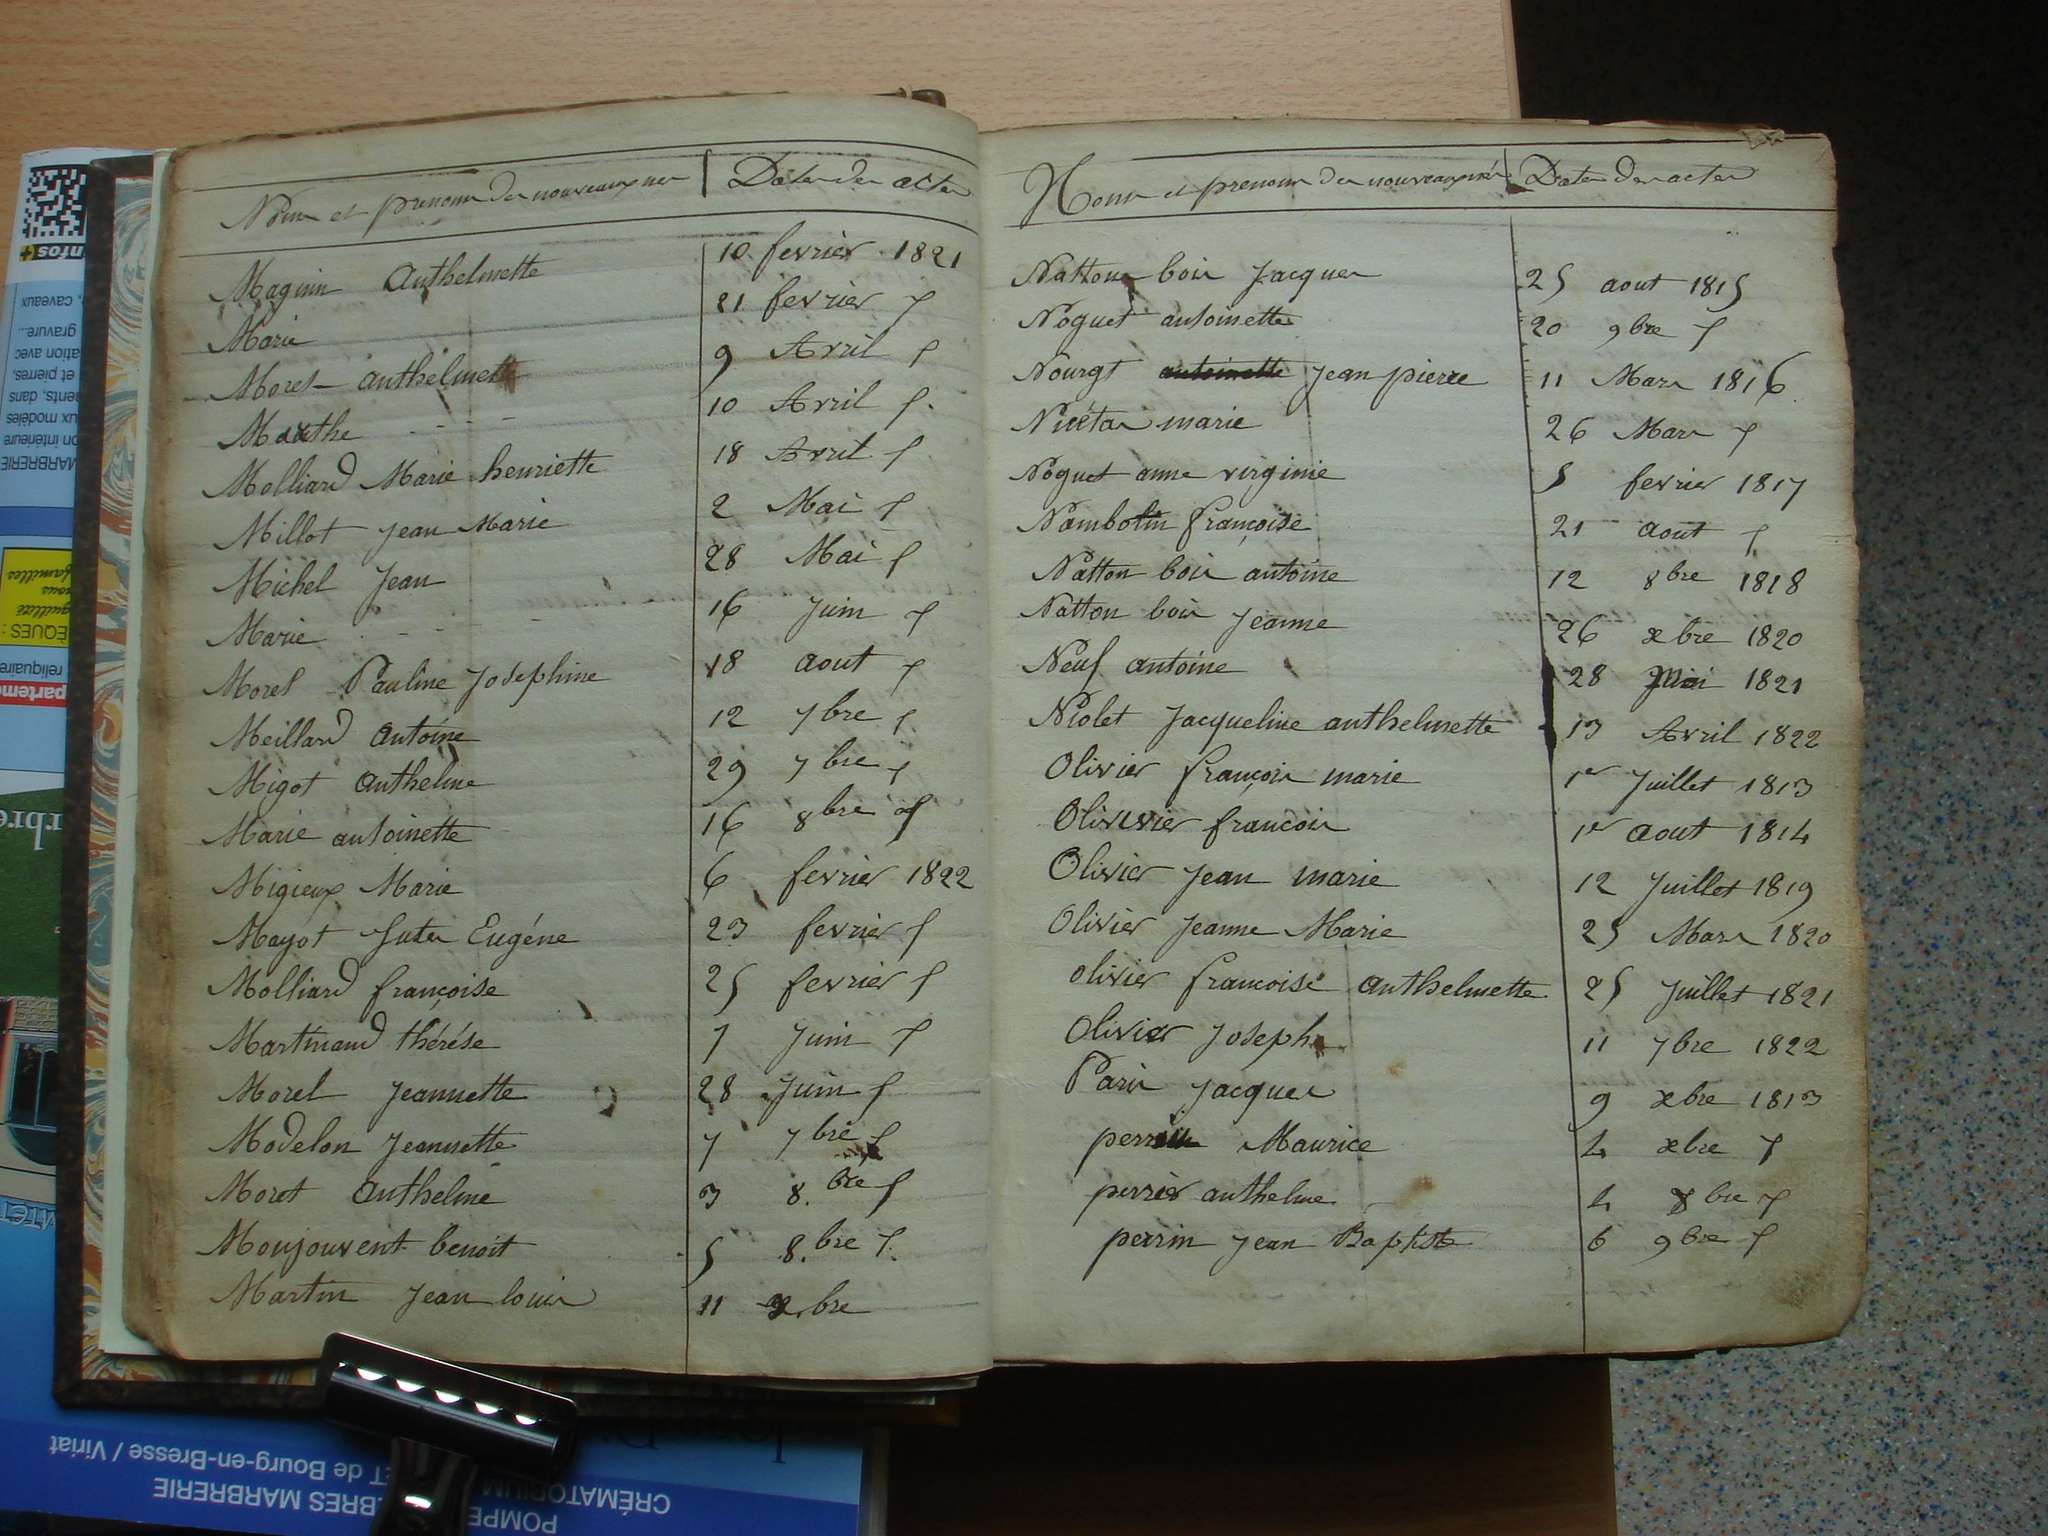 Noms et prenoms des nouveaux nés Dates des actes
Magnin Anthelmette 10 fevrier 1821
Marie 21 fevrier
Morel anthelmette 9 Avril
Marthe 10 Avril
Molliard Marie henriette 18 Avril
Millot Jean Marie 2 Mai
Michel Jean 28 Mai
Marie 16 Juin
Morel Pauline Josephine 18 aout
Meillard Antoine 12 7bre
Migot Anthelme 29 7bre
Marie antoinette 16 8bre
Migieux Marie 6 fevrier 1822
Mayot Eugéne 23 fevrier
Molliard françoise 25 fevrier
Martinand thérése 7 Juin
Morel Jeannette 28 Juin
Modelon Jeannette 7 7bre
Moret Anthelme 3 8.bre
Monjouvent benoit 5 8.bre
Martin Jean louis 11 xbre
Noms et prenoms des nouveaux nés Dates des actes
Natton bois Jacques 25 aout 1815
Noguet antoinette 20 9bre
Nourgt antoinette Jean pierre 11 Mars 1816
Nicétas marie 26 Mars
Noguet anne virginie 5 fevrier 1817
Nambotin françoise 21 aout
Natton bois antoine 12 8bre 1818
Natton bois Jeanne 26 xbre 1820
Neuf antoine 28 Mai 1821
Niolet Jacqueline anthelmette 13 Avril 1822
Olivier françois marie 1er Juillet 1813
Olivier francois 1er aout 1814
Olivier Jean marie 12 Juillet 1819
Olivier Jeanne Marie 25 Mars 1820
olivier francoise anthelmette 25 Juillet 1821
Olivier Joseph 11 7bre 1822
Paris Jacques 9 xbre 1813
perrin Maurice 4 xbre
perrier anthelme 4 bre
perrin Jean Baptiste 6 9bre
infos+
caveaux
gravure...
et pierres,
dans
modèles
intérieure
MARBRERIE
reliquaire
POMPE
MARBRERIE
CRÉMATORIUM
de Bourg-en-Bresse / Viriat